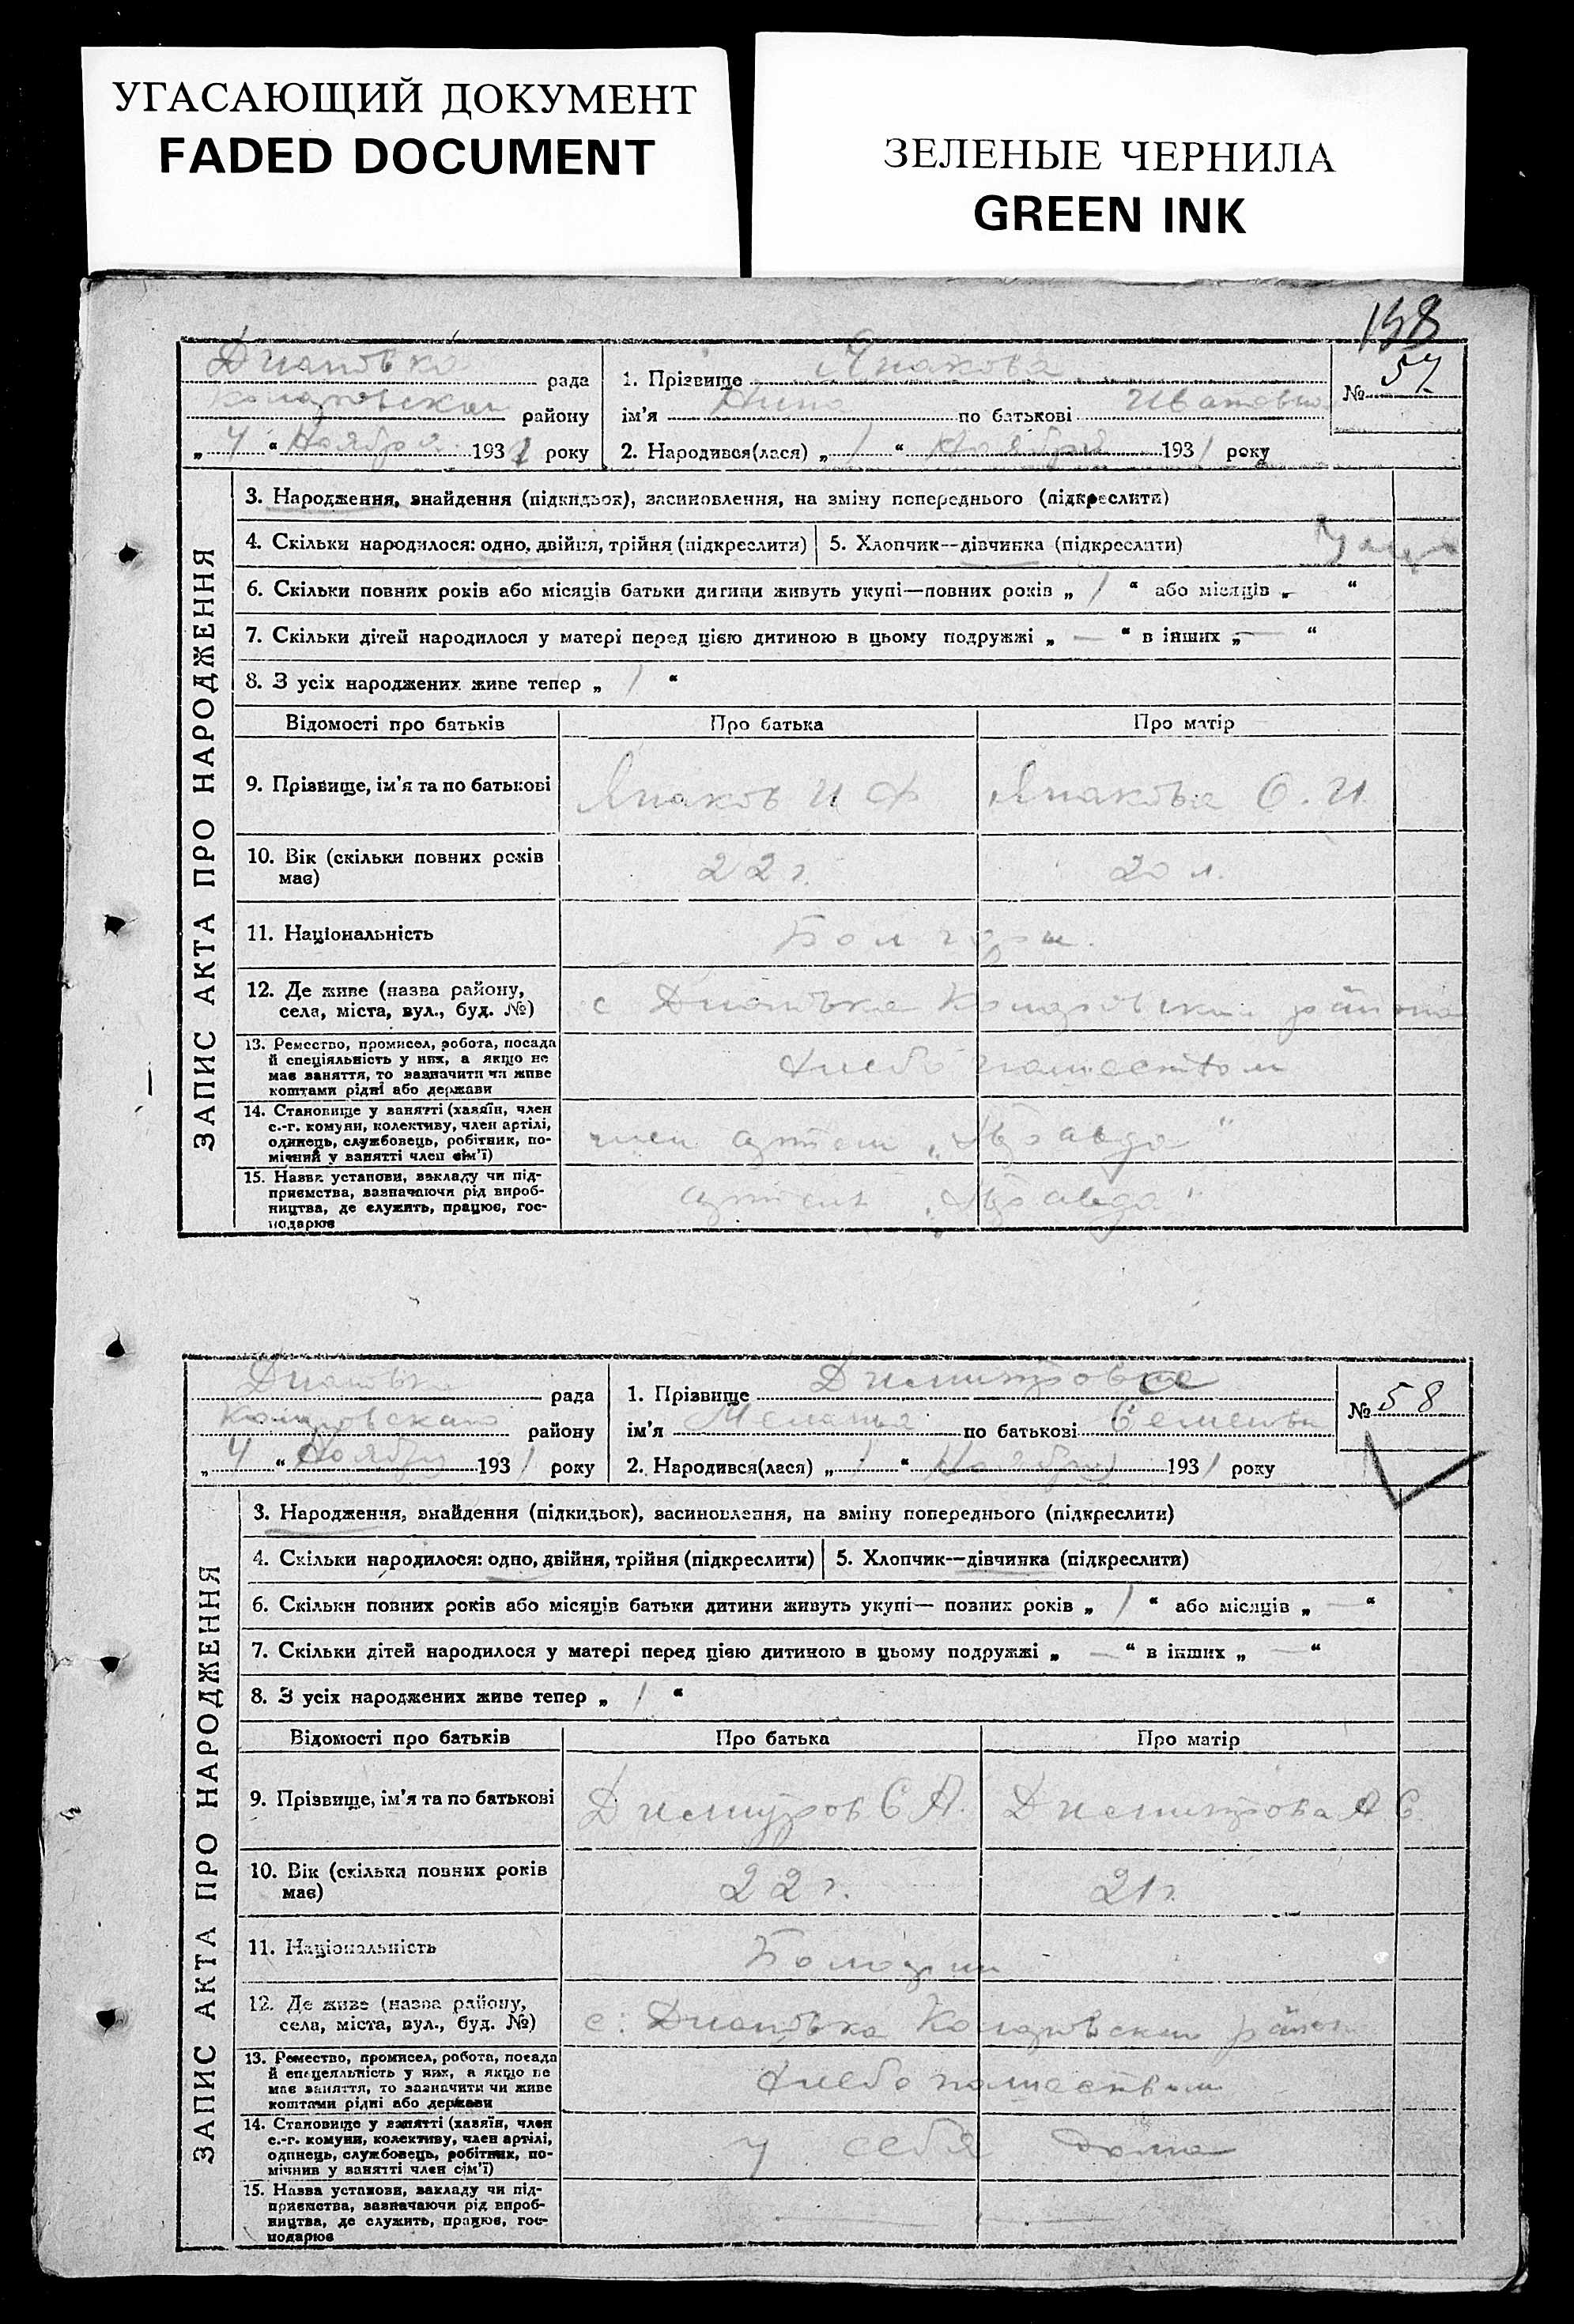 УГАСАЮЩИЙ ДОКУМЕНТ
FADED DOCUMENT
ЗЕЛЕНЫЕ ЧЕРНИЛА
GREEN INK
158
Диановка рада
районy
„ 4 “ Ноября 1931 року
1. Прізвище
ім'я Нина по батькові Ивановна
2. Народився(лася) „ 1 “ Ноября 1931 року
№ 57
ЗАПИС АКТА ПРО НАРОДЖЕННЯ
3. Народження, знайдення (підкидьок), засиновлення, на зміну попереднього (підкреслити)
4. Скільки народилося: одно, двійня, трійня (підкреслити)
5. Хлопчик—дівчинка (підкреслити)
6. Скільки повних років або місяців батьки дитини живуть укупі—повних років „ 1 “ або місяців „ “
7. Скільки дітей народилося у матері перед цією дитиною в цьому подружжі „ — “ в інших „ — “
8. З усіх народжених живе тепер „ 1 “
Відомості про батьків
Про батька
Про матір
9. Прізвище, ім'я та по батькові
И Ф
О. И
10. Вік (скільки повних років
має)
22 г.
20 л.
11. Національність
Болгары.
12. Де живе (назва району,
села, міста, вул., буд. №)
с Диановка района
13. Ремество, промисел, робота, посада
й спеціяльність у них, а якщо не
має заняття, то зазначити чи живе
коштами рідні або держави
Хлебопашеством
14. Становище у занятті (хазяїн, член
с.-г. комуни, колективу, член артілі,
одинець, службовець, робітник, по-
мічний у занятті член сім'ї)
член артели „Правда“
15. Назва установи, закладу чи під-
приємства, зазначаючи рід вироб-
ництва, де служить, працює, гос-
подарює
„Правда“
Диановка рада
району
„ 4 “ Ноября 1931 року
1. Прізвище Димитрова
ім'я по батькові Семеновна
2. Народився(лася) „ 1 “ Ноября 1931 року
№ 58
ЗАПИС АКТА ПРО НАРОДЖЕННЯ
3. Народження, знайдення (підкидьок), засиновлення, на зміну попереднього (підкреслити)
4. Скільки народилося: одно, двійня, трійня (підкреслити)
5. Хлопчик—дівчинка (підкреслити)
6. Скільки повних років або місяців батьки дитини живуть укупі— повних років „ 1 “ або місяців „ — “
7. Скільки дітей народилося у матері перед цією дитиною в цьому подружжі „ — “ в інших „ — “
8. З усіх народжених живе тепер „ 1 “
Відомості про батьків
Про батька
Про матір
9. Прізвище, ім'я та по батькові
Димитров С А.
Димитрова А С.
10. Вік (скілька повних років
має)
22 г.
21 г.
11. Національність
Болгары
12. Де живе (назва району,
села, міста, вул., буд. №)
с. Диановка район
13. Ремество, промисел, робота, посада
й спецеяльність у них, а якщо не
має заняття, то зазначити чи живе
коштами рідні або держави
Хлебопашеством
14. Становище у занятті (хазяїн, член
с.-г. комуни, колективу, член артілі,
одинець, службовець, робітник, по-
мічнив у занятті член сім'ї)
у себя дома
15. Назва установи, закладу чи під-
приємства, зазначаючи рід вироб-
ництва, де служить, працює, гос-
подарює